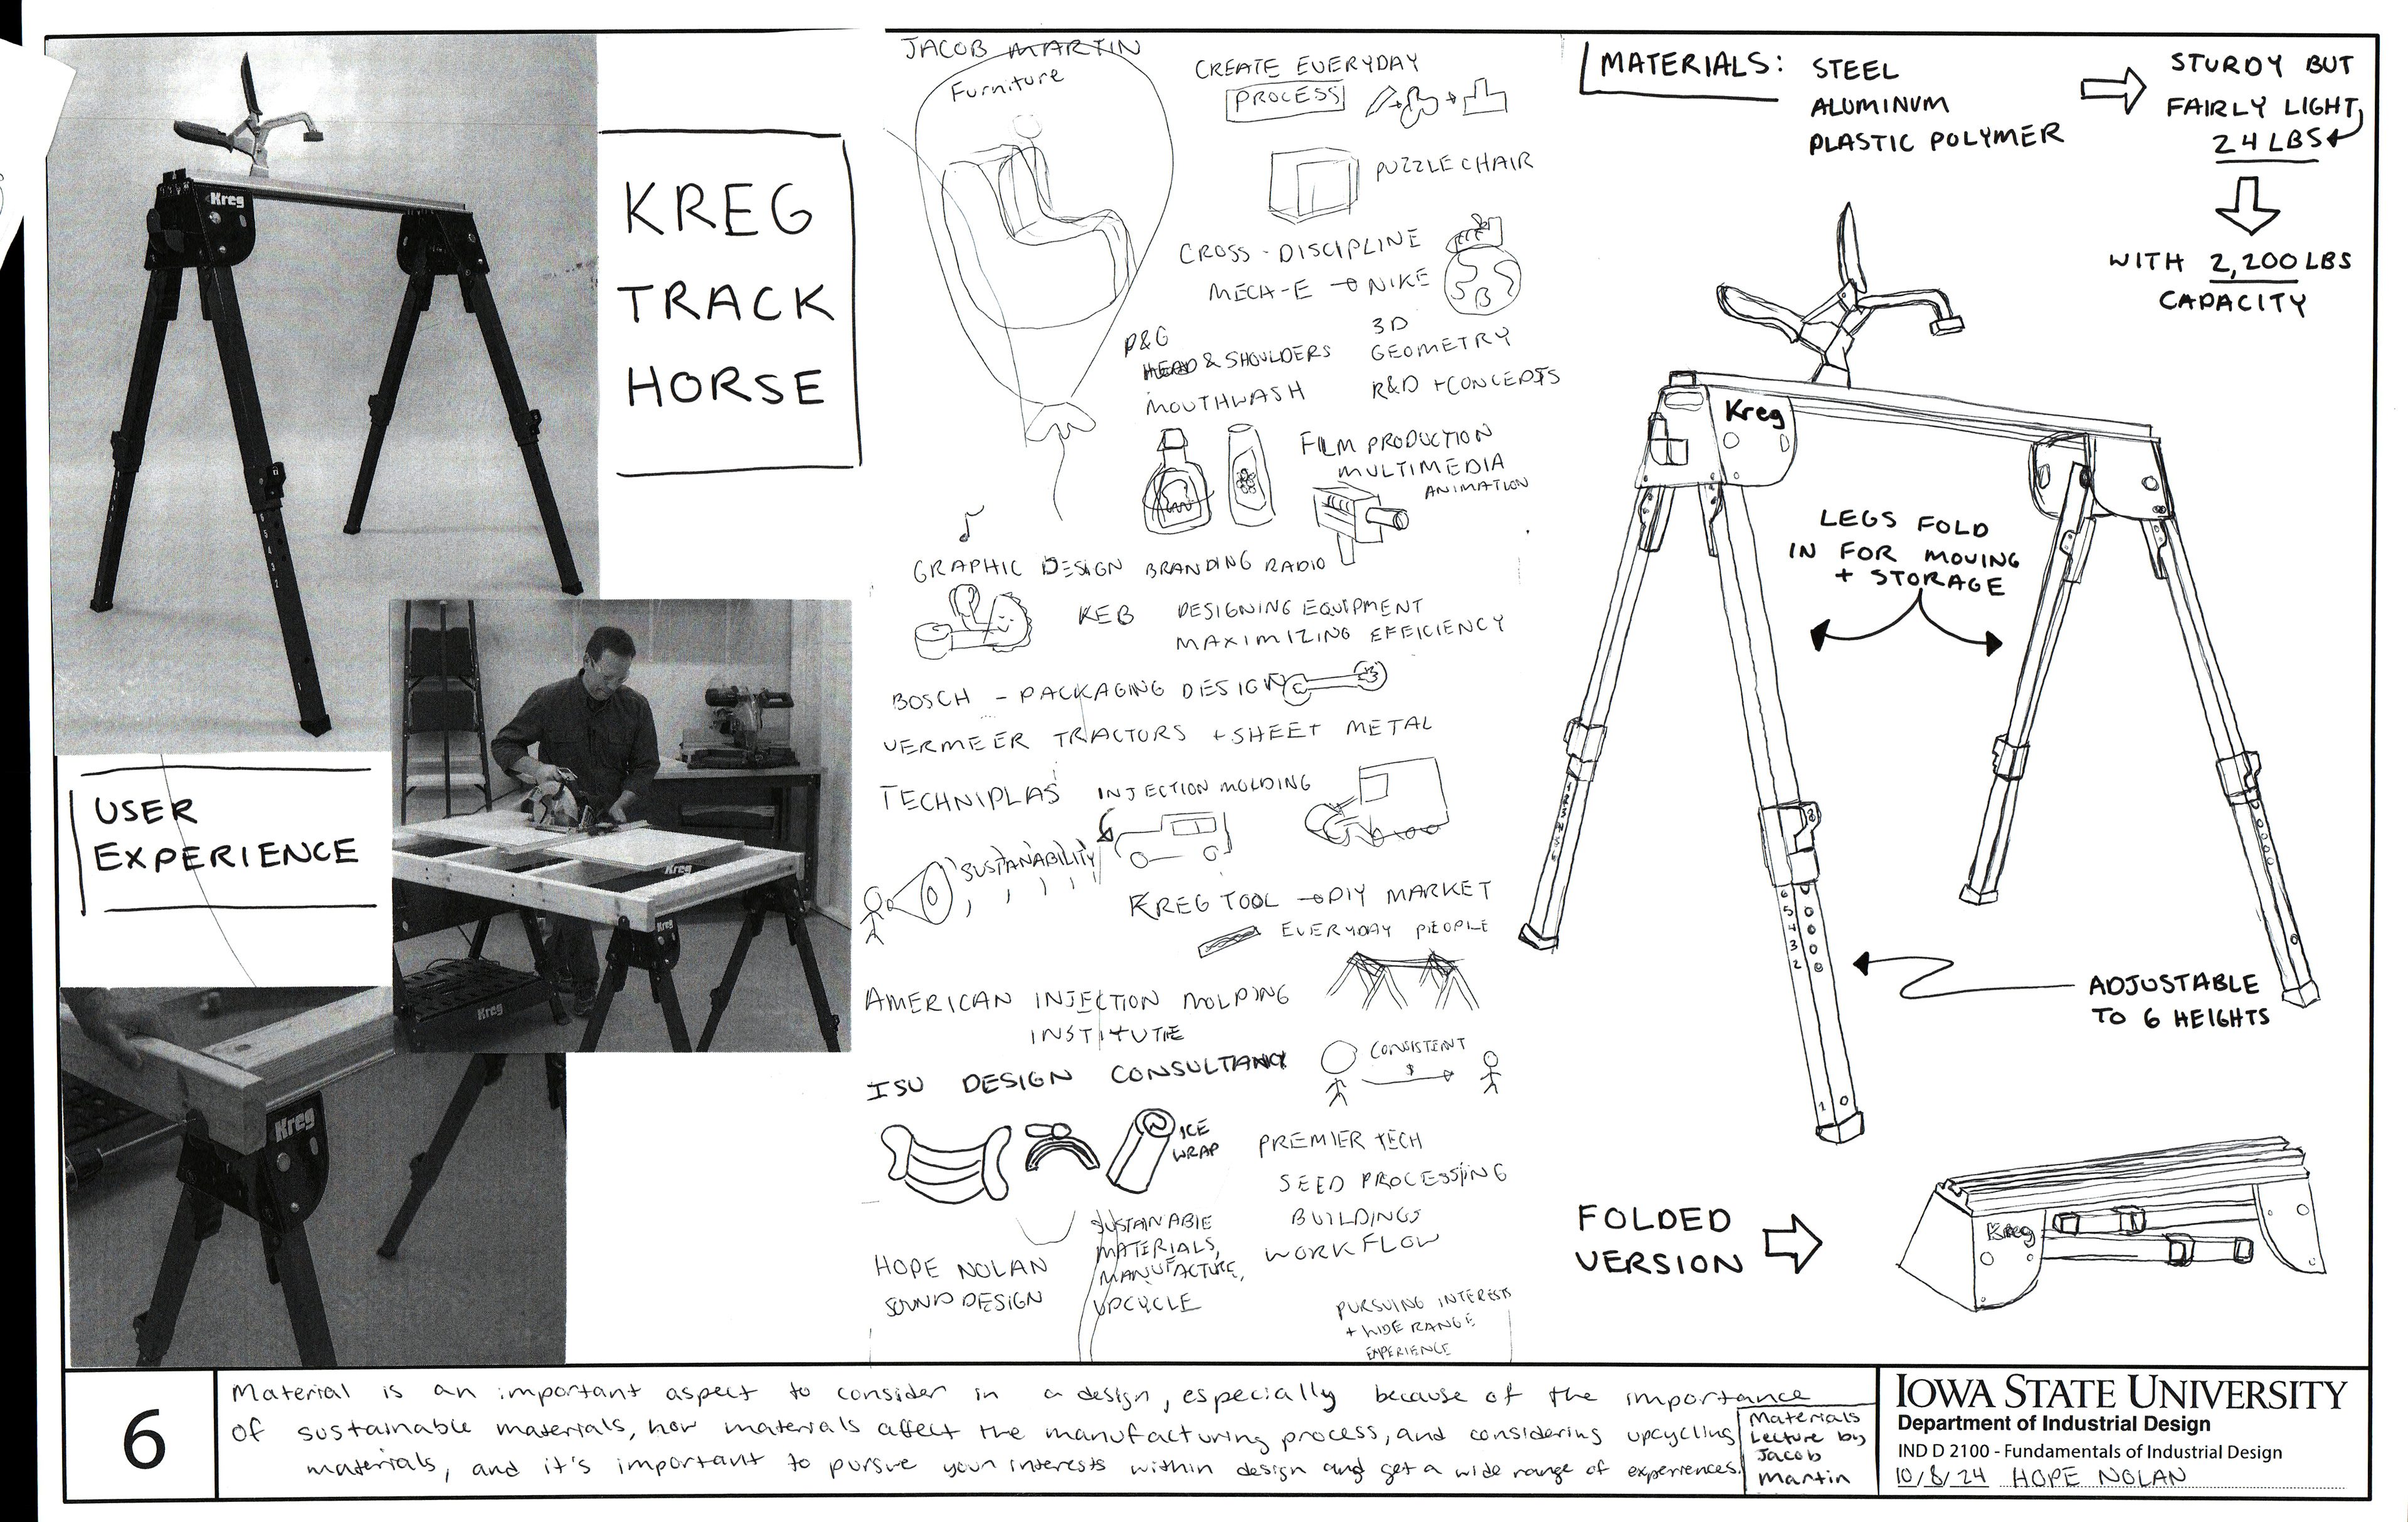 KREG
TRACK
HORSE
Kreg
USER
EXPERIENCE
Kreg
Kreg
Kreg
Kreg
JACOB MARTIN
Furniture
CREATE EVERYDAY
PROCESS
PUZZLE CHAIR
CROSS-DISCIPLINE
MECH-E → NIKE
P&G
HEAD & SHOULDERS
MOUTHWASH
3D
GEOMETRY
R&D + CONCEPTS
FILM PRODUCTION
MULTIMEDIA
ANIMATION
GRAPHIC DESIGN BRANDING RADIO
KEB DESIGNING EQUIPMENT
MAXIMIZING EFFICIENCY
BOSCH - PACKAGING DESIGN
VERMEER TRACTORS + SHEET METAL
TECHNIPLAS INJECTION MOLDING
SUSTANABILITY
KREG TOOL → DIY MARKET
EVERYDAY PEOPLE
AMERICAN INJECTION MOLDING
INSTITUTE
CONSISTENT
$
ISU DESIGN CONSULTANCY
ICE
WRAP
PREMIER TECH
SEED PROCESSING
BUILDINGS
WORKFLOW
HOPE NOLAN
SOUND DESIGN
SUSTAINABLE
MATERIALS,
MANUFACTURE,
UPCYCLE
PURSUING INTERESTS
+ WIDE RANGE
EXPERIENCE
MATERIALS: STEEL
ALUMINUM
PLASTIC POLYMER
STURDY BUT
FAIRLY LIGHT
24 LBS
WITH 2,200 LBS
CAPACITY
Kreg
LEGS FOLD
IN FOR MOVING
+ STORAGE
6
5
4
3
2
1
ADJUSTABLE
TO 6 HEIGHTS
FOLDED
VERSION
Kreg
6
Material is an important aspect to consider in a design, especially because of the importance
of sustainable materials, how materials affect the manufacturing process, and considering upcycling
materials, and it's important to pursue your interests within design and get a wide range of experiences.
Materials
Lecture by
Jacob
Martin
IOWA STATE UNIVERSITY
Department of Industrial Design
IND D 2100 - Fundamentals of Industrial Design
10/8/24 HOPE NOLAN